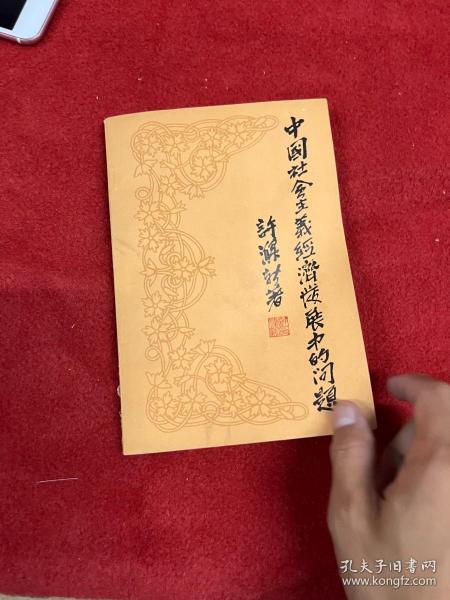 中國社会主義經濟發展中的问題
許滌新著
孔夫子旧书网
www.kongfz.com